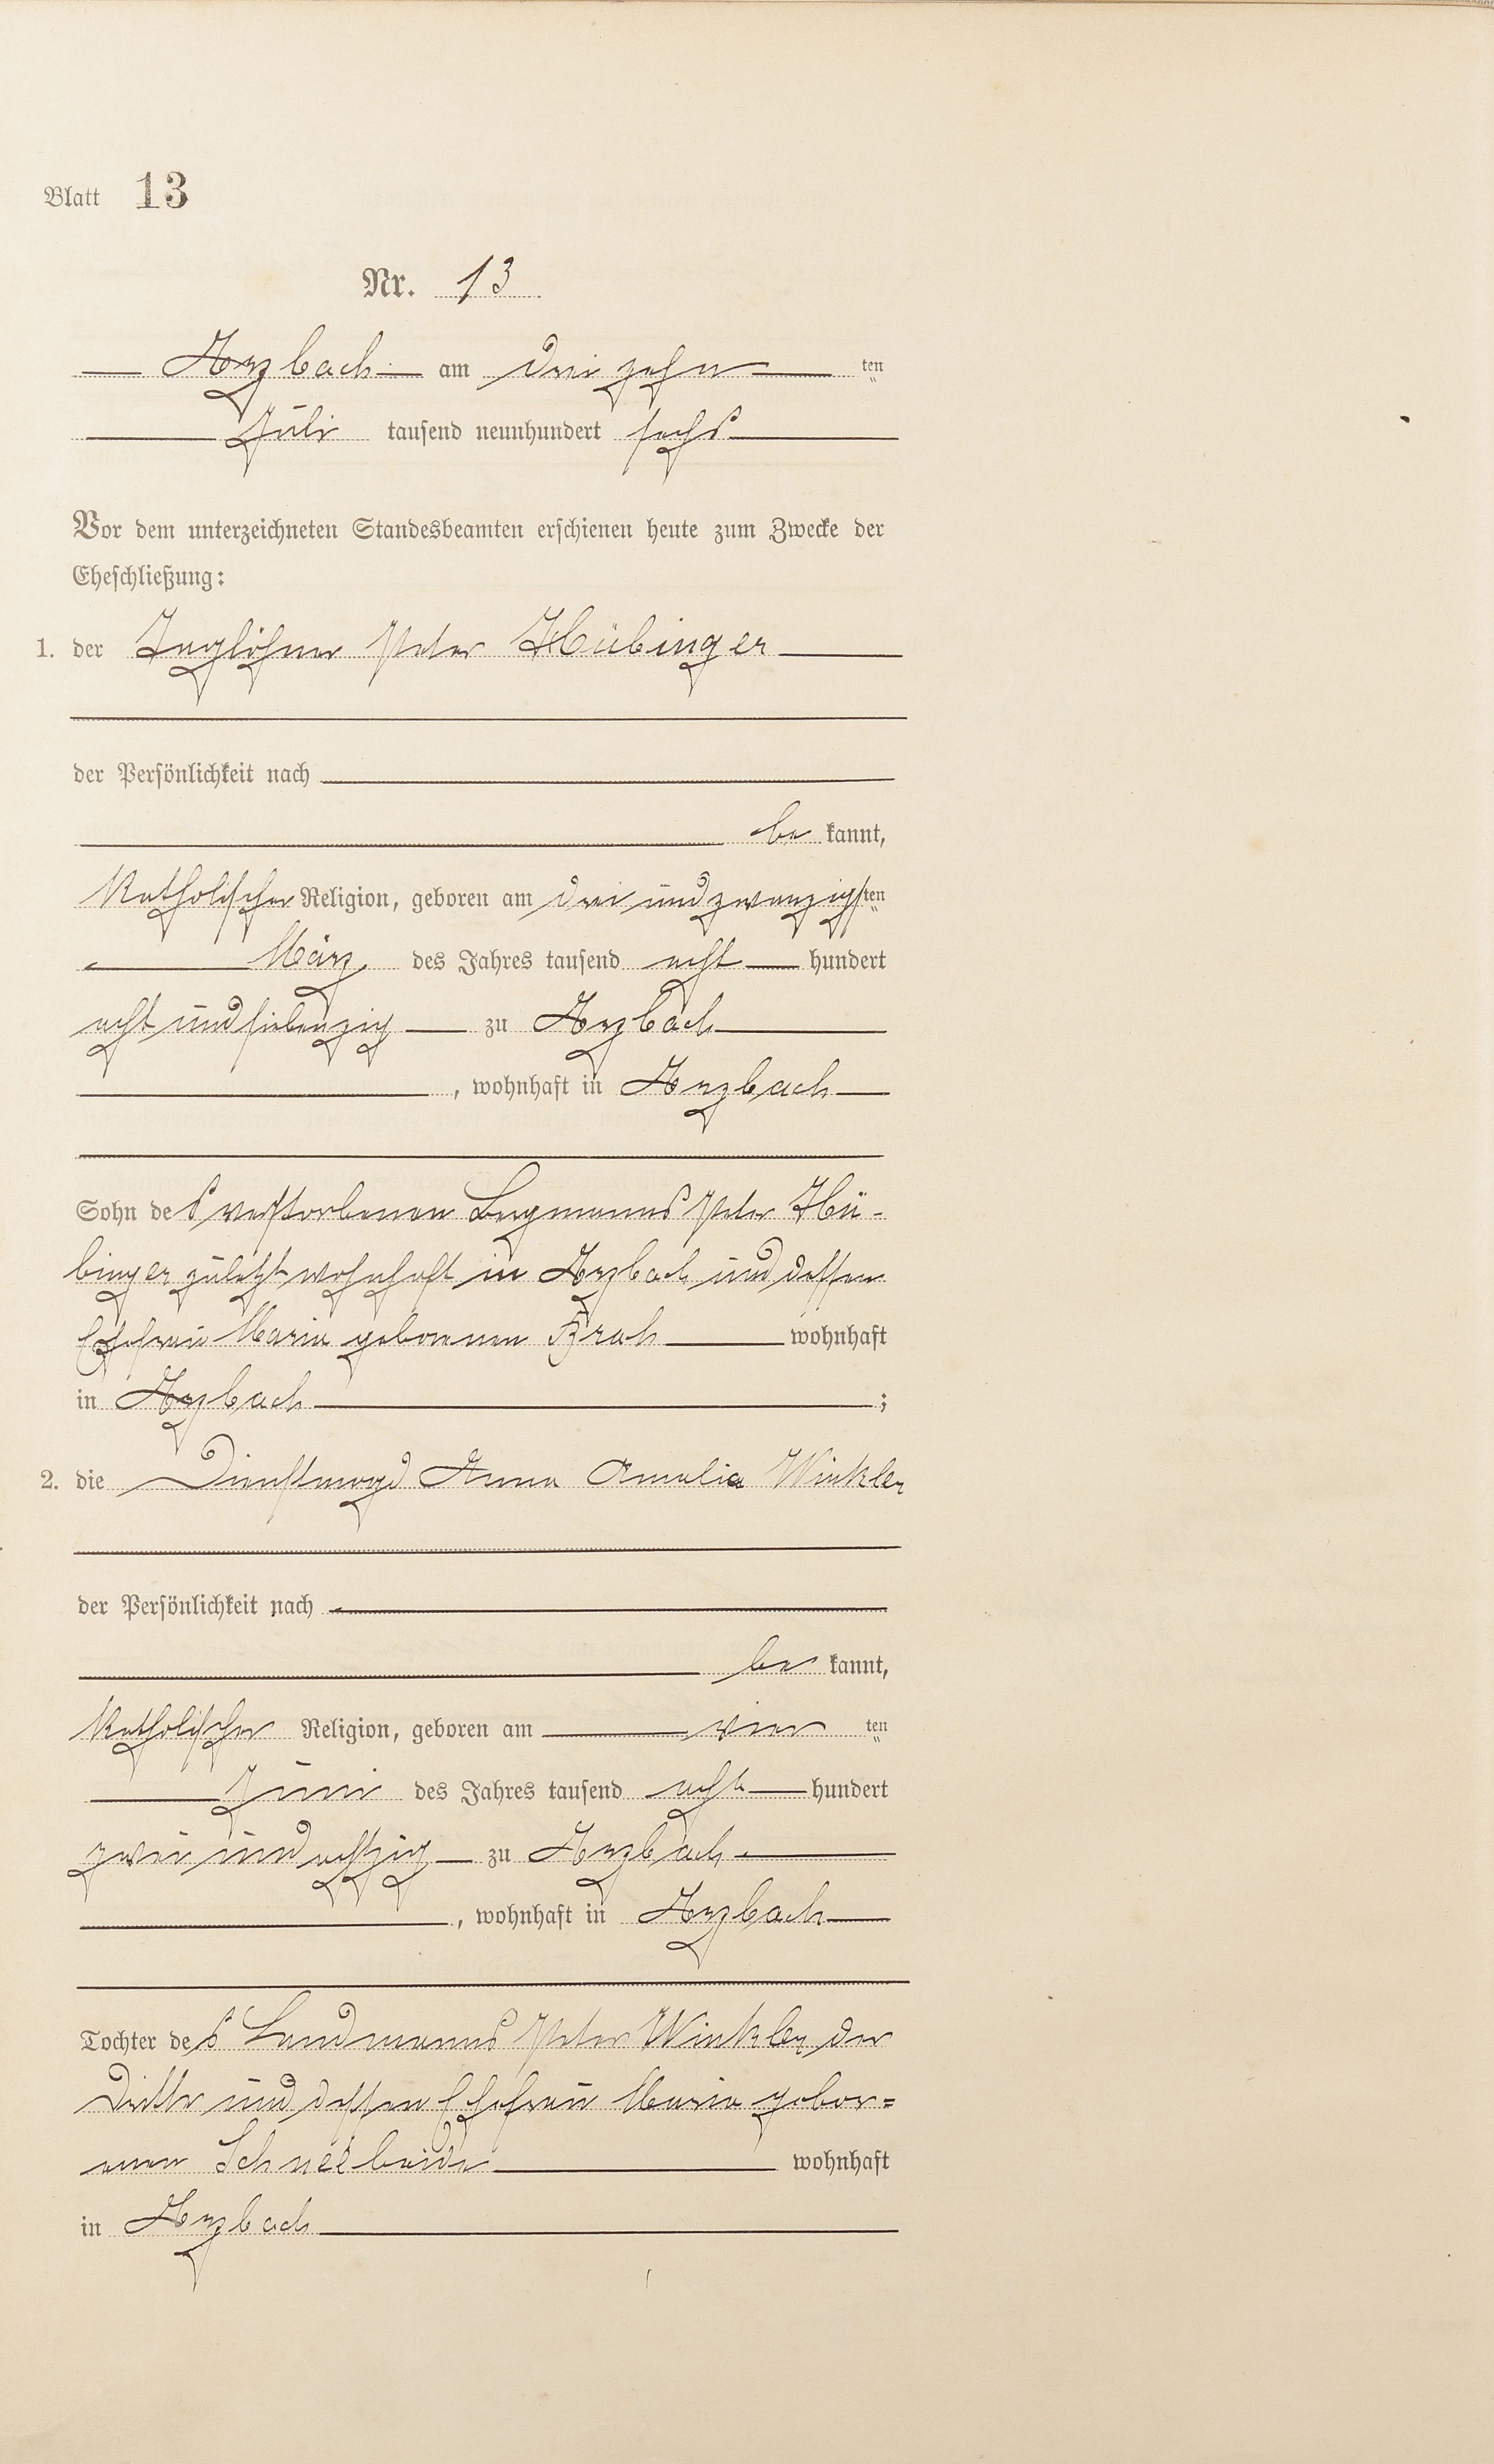 Blatt 13
Nr. 13
Arzbach am dreizehn ten
Juli tausend neunhundert sechs
Vor dem unterzeichneten Standesbeamten erschienen heute zum Zwecke der
Eheschließung:
1. der Taglöhner Peter Hübinger
der Persönlichkeit nach
be kannt,
Katholischer Religion, geboren am drei und zwanzigsten
März des Jahres tausend acht hundert
acht und siebenzig zu Arzbach
, wohnhaft in Arzbach
Sohn des verstorbenen Bergmanns Peter Hü-
binger zuletzt wohnhaft in Arzbach und dessen
Ehefrau Maria geborenen Brah wohnhaft
in Arzbach ;
2. die Dienstmagd Anna Amalia Winkler
der Persönlichkeit nach
be kannt,
Katholischer Religion, geboren am vier ten
Juni des Jahres tausend acht hundert
zwei und achtzig zu Arzbach
, wohnhaft in Arzbach
Tochter des Landmanns Peter Winkler der
Dritte und dessen Ehefrau Maria gebor=
enen wohnhaft
in Arzbach